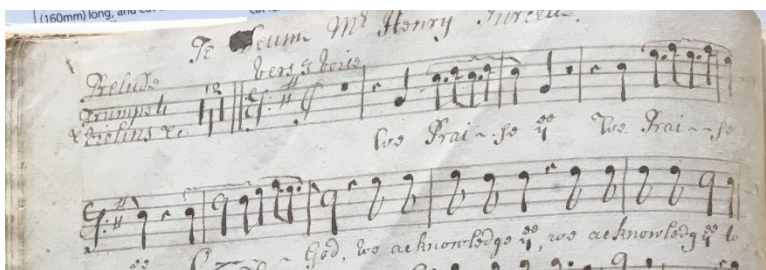 (160mm) long, and cu
Te Deum Mr Henry Purcell.
Prelude
Trumpets
& Violins &c.
18
vers 3 voic
We Prai~se yee We Prai~~se
yee ~ God, we acknowledge yee, we acknowledg yee to